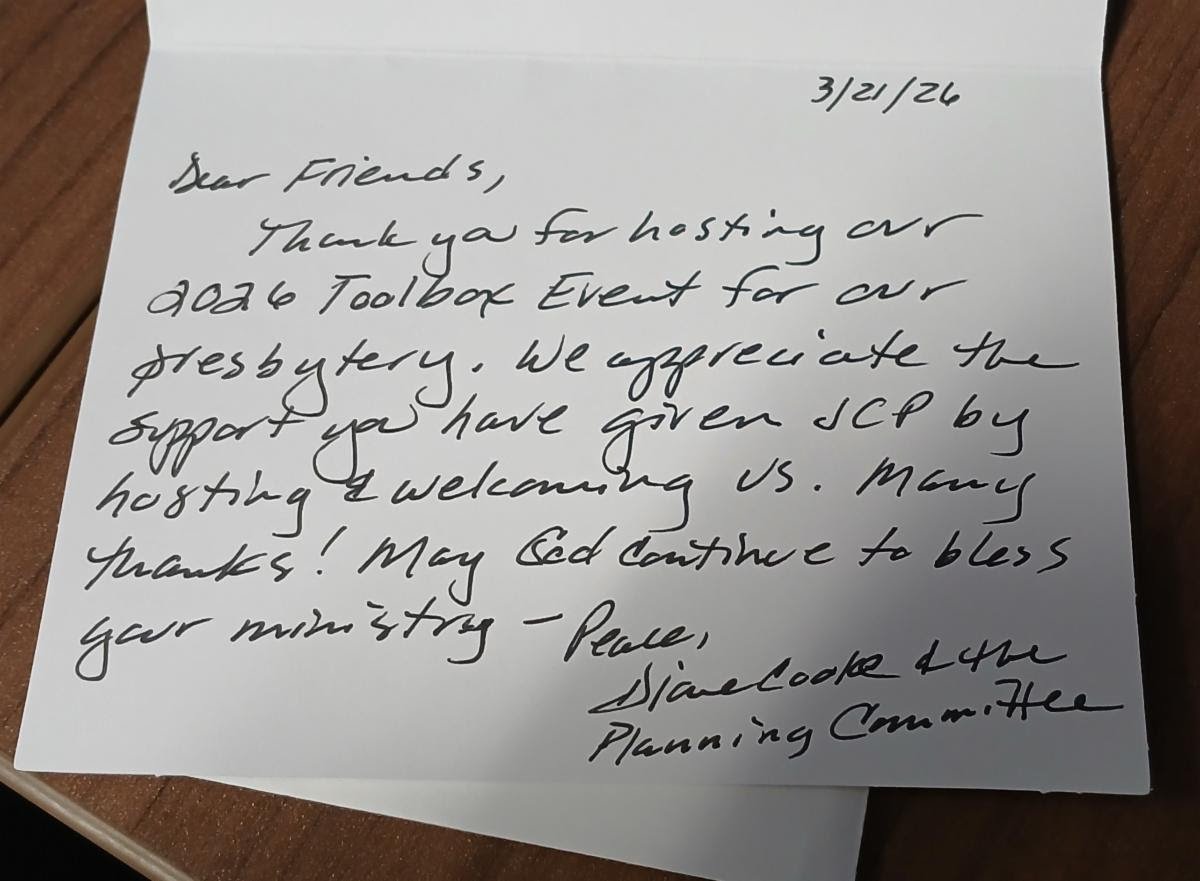 3/21/26
Dear Friends,
Thank you for hosting our
2026 Toolbox Event for our
presbytery. We appreciate the
support you have given JCP by
hosting & welcoming us. Many
thanks! May God continue to bless
your ministry - Peace,
Diane Cooke & the
Planning Committee